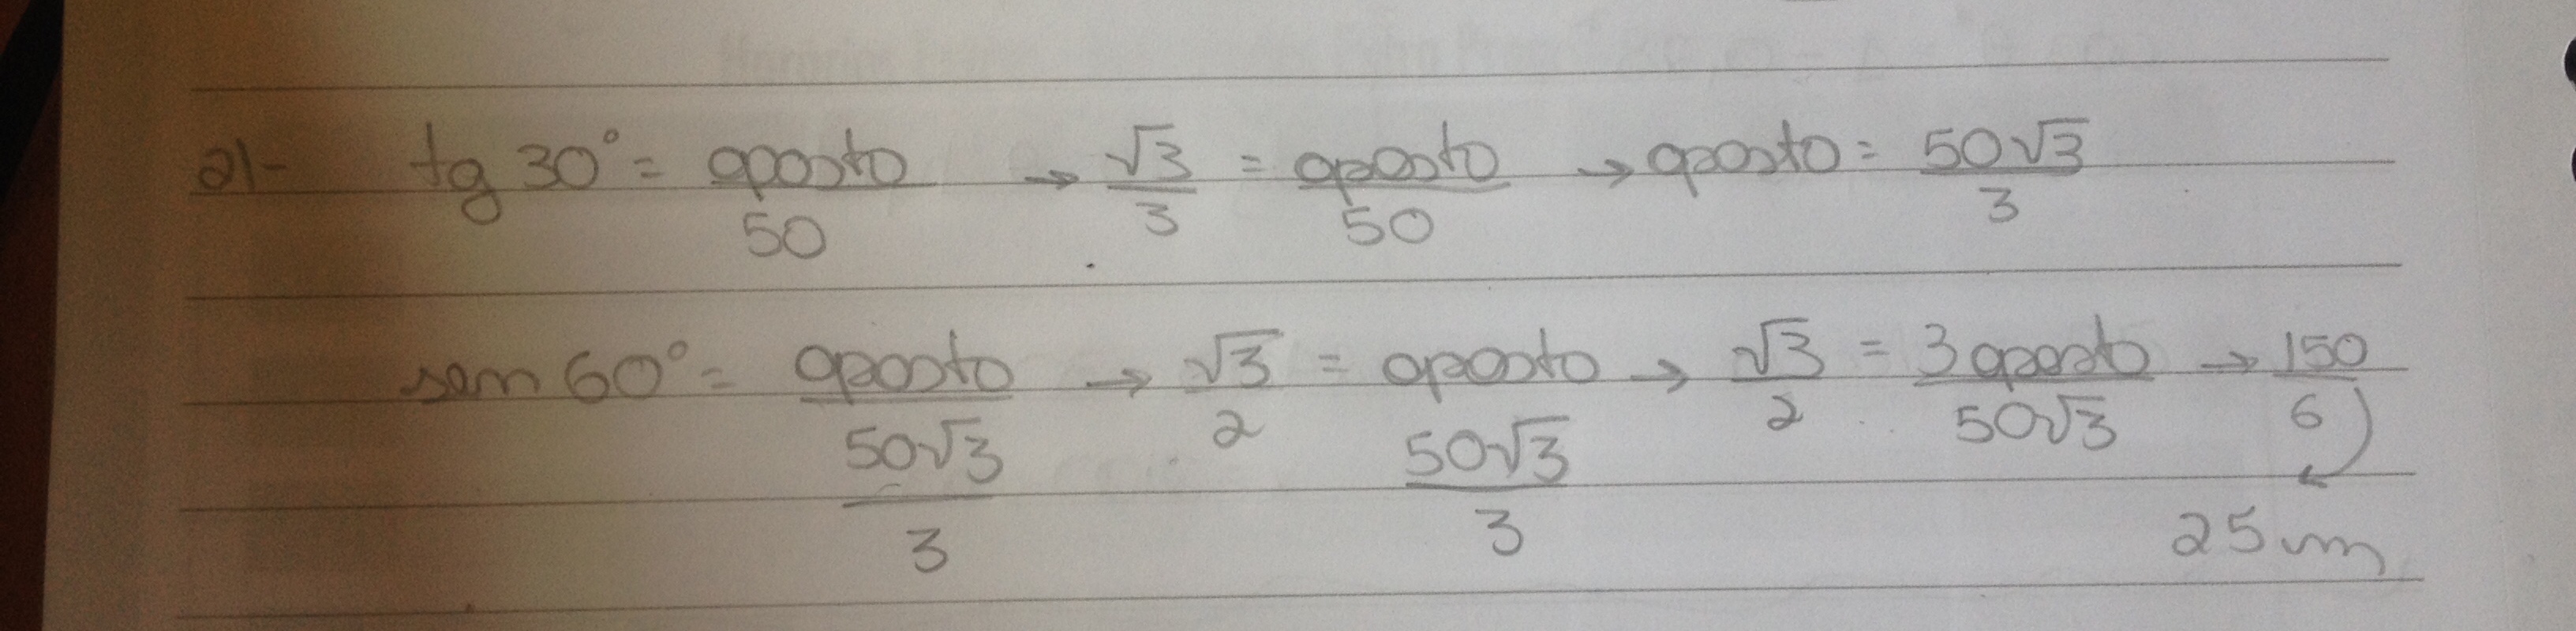 21- tg 30° = oposto/50 → √3/3 = oposto/50 → oposto = 50√3/3
sen 60° = oposto/(50√3/3) → √3/2 = oposto/(50√3/3) → √3/2 = 3 oposto/50√3 → 150/6
25 cm